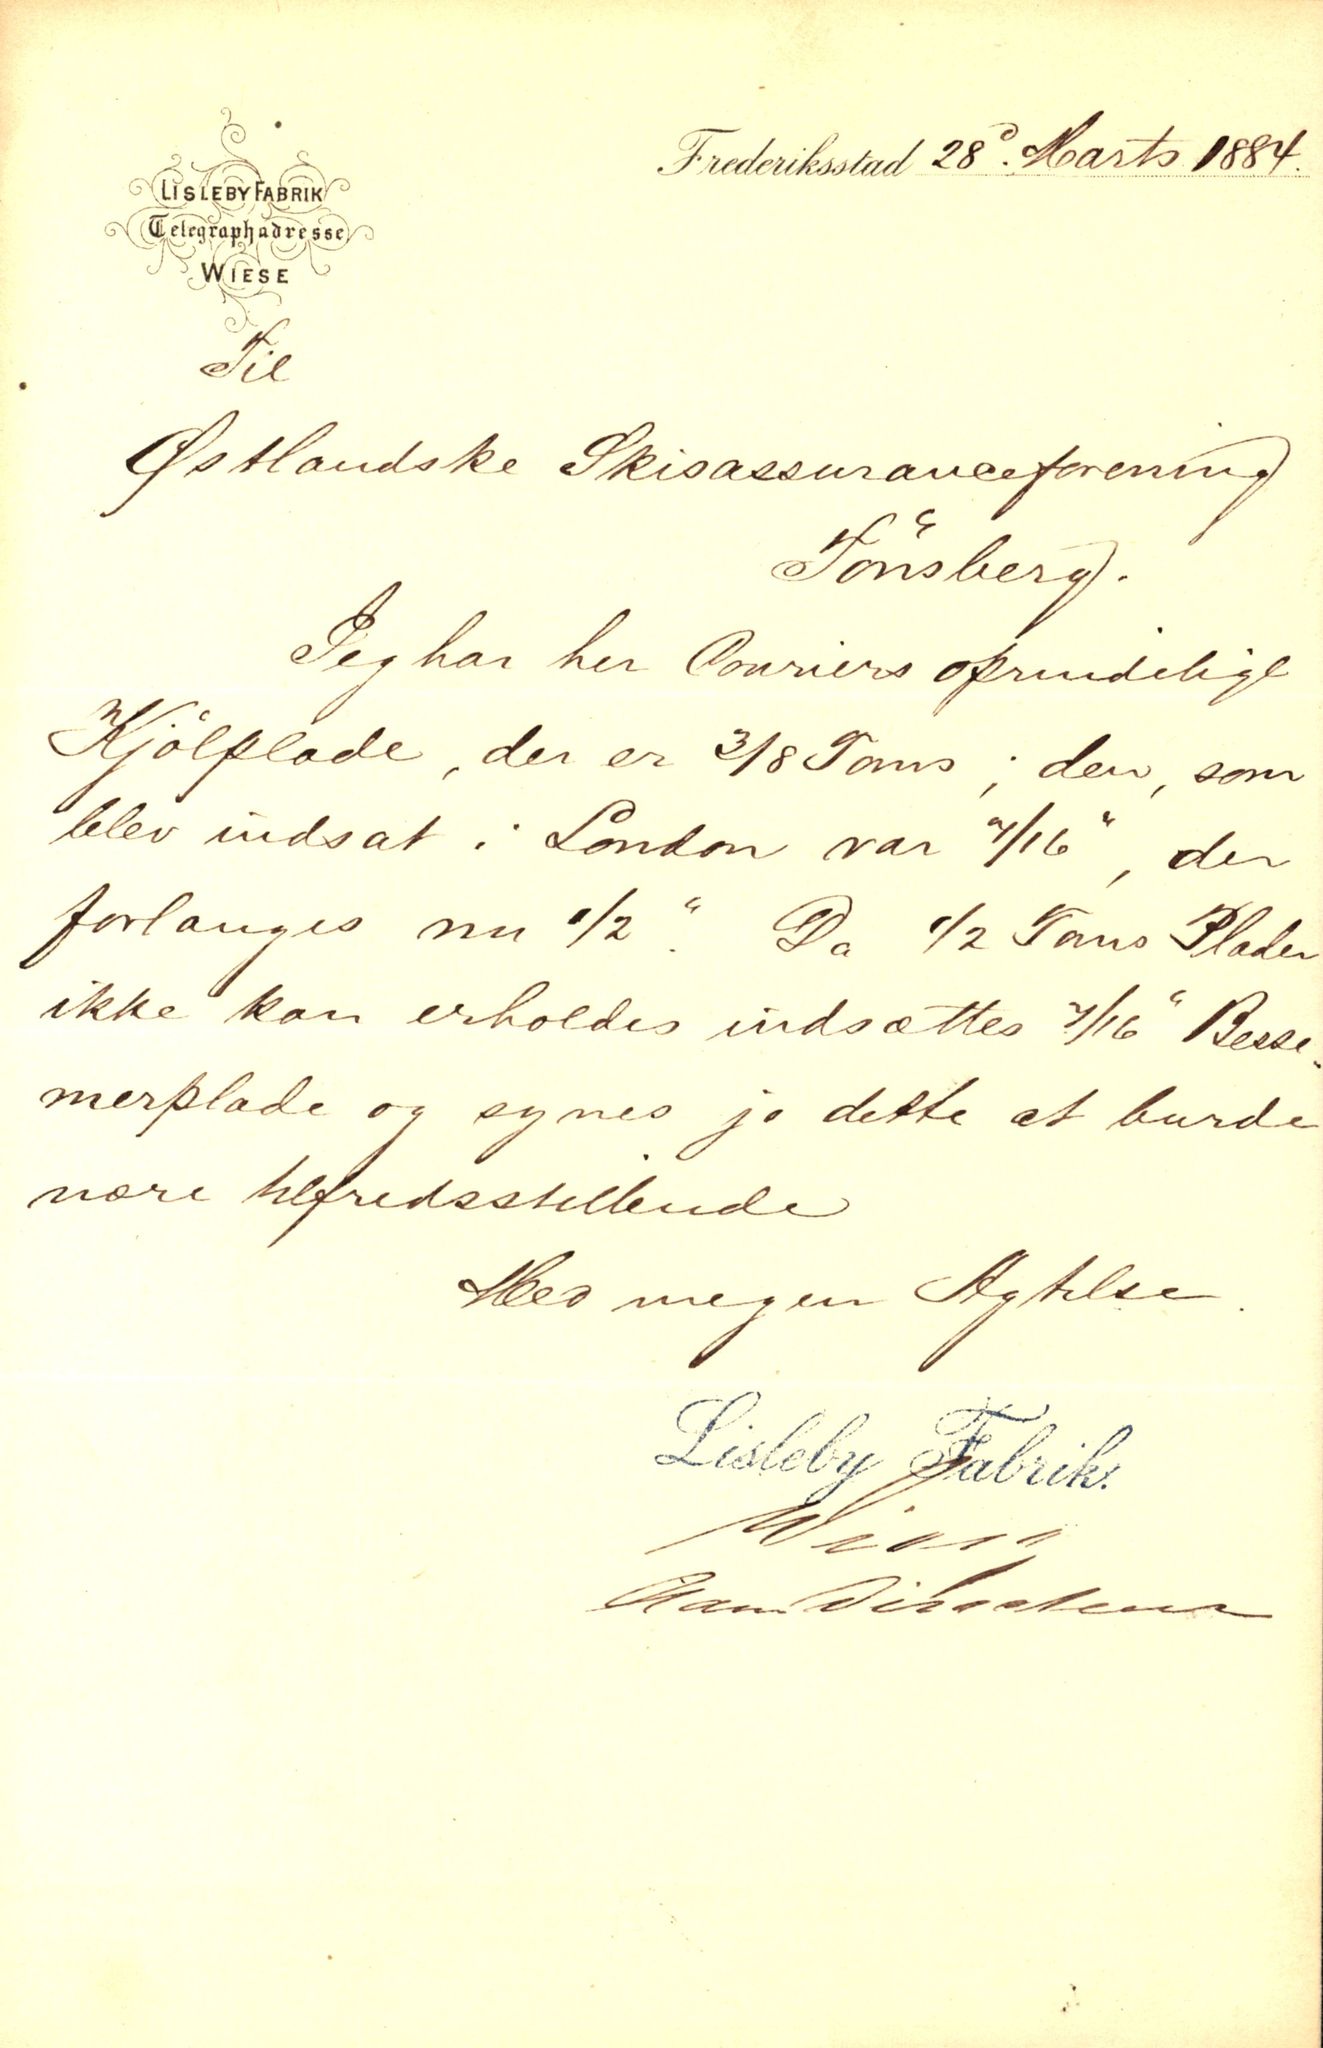 LISLEBY FABRIK
Telegraphadresse
WIESE
Frederiksstad 28d. Marts 1884.
Til
Østlandske Skisassuranceforening
Tönsberg.
Jeg har her Couriers oprindelige
Kjölplade, der er 3/8 Toms; den, som
blev indsat i London var 7/16", der
forlanges nu 1/2". Da 1/2 Toms Plader
ikke kan erholdes indsættes 7/16" Besse-
merplade og synes jo dette at burde
være tilfredsstillende
Med megen Agtelse.
Lisleby Fabrik.
Wiese